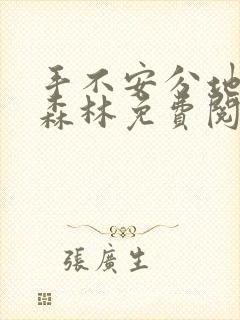 手不安分地
森林免費閱
張廣生